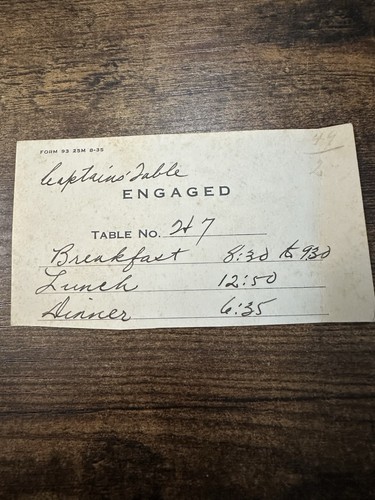 FORM 93 25M 8-35
Captains' Table
ENGAGED
TABLE NO. 247
Breakfast 8:30 to 930
Lunch 12:50
Dinner 6:35